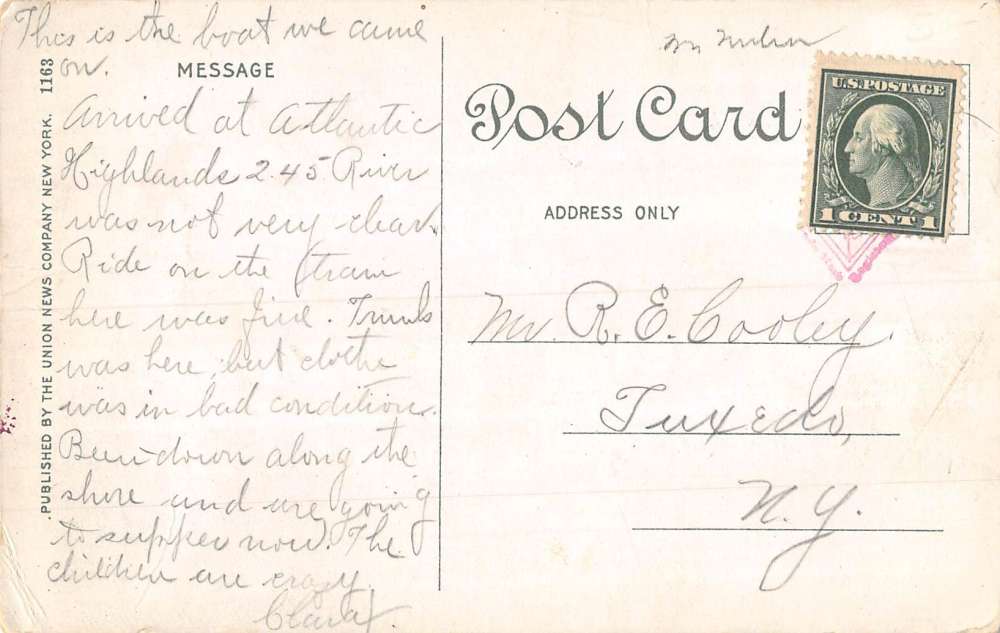 This is the boat we came
on.
MESSAGE
Arrived at Atlantic
Highlands 2.45 River
was not very clear.
Ride on the train
here was fine. Trunks
was here but clothe
was in bad condition.
Been down along the
shore and are going
to supper now. The
children are crazy.
Clara
PUBLISHED BY THE UNION NEWS COMPANY NEW YORK. 1163
Post Card
ADDRESS ONLY
U.S. POSTAGE
1 CENT 1
Mr. R. E. Cooley.
Tuxedo,
N. Y.